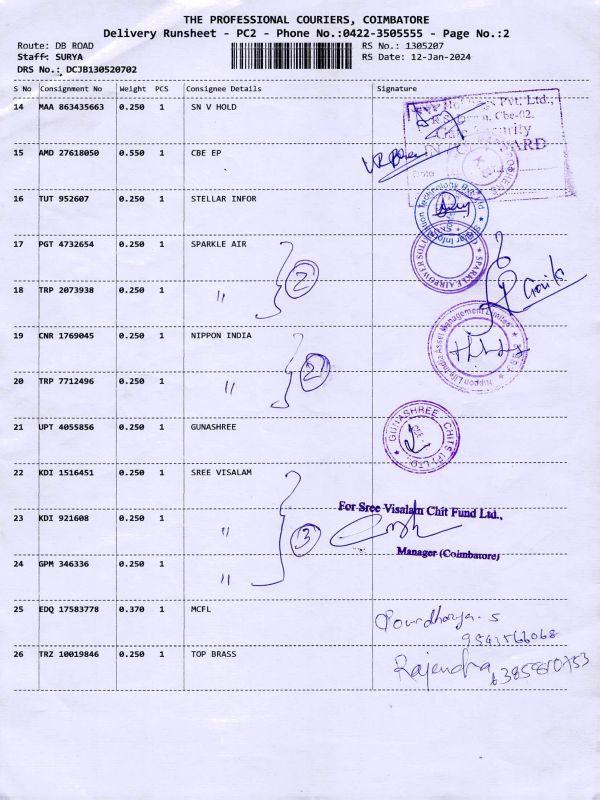 THE PROFESSIONAL COURIERS, COIMBATORE
Delivery Runsheet - PC2 - Phone No.:0422-3505555 - Page No.:2
Route: DB ROAD RS No.: 1305207
Staff: SURYA RS Date: 12-Jan-2024
DRS No.: DCJB130520702
S No Consignment No Weight PCS Consignee Details Signature
14 MAA 863435663 0.250 1 SN V HOLD
Pvt. Ltd.,
Cbe-02.
15 AMD 27618050 0.550 1 CBE EP
16 TUT 952607 0.250 1 STELLAR INFOR
17 PGT 4732654 0.250 1 SPARKLE AIR
2
18 TRP 2073938 0.250 1 "
19 CNR 1769045 0.250 1 NIPPON INDIA
Nippon Life India Asset Management Limited
2
20 TRP 7712496 0.250 1 "
21 UPT 4055856 0.250 1 GUNASHREE
GUNASHREE CHITS (P) LTD
22 KDI 1516451 0.250 1 SREE VISALAM
For Sree Visalam Chit Fund Ltd.,
23 KDI 921608 0.250 1 "
3
Manager (Coimbatore)
24 GPM 346336 0.250 1 "
25 EDQ 17583778 0.370 1 MCFL
26 TRZ 10019846 0.250 1 TOP BRASS
Rajendra